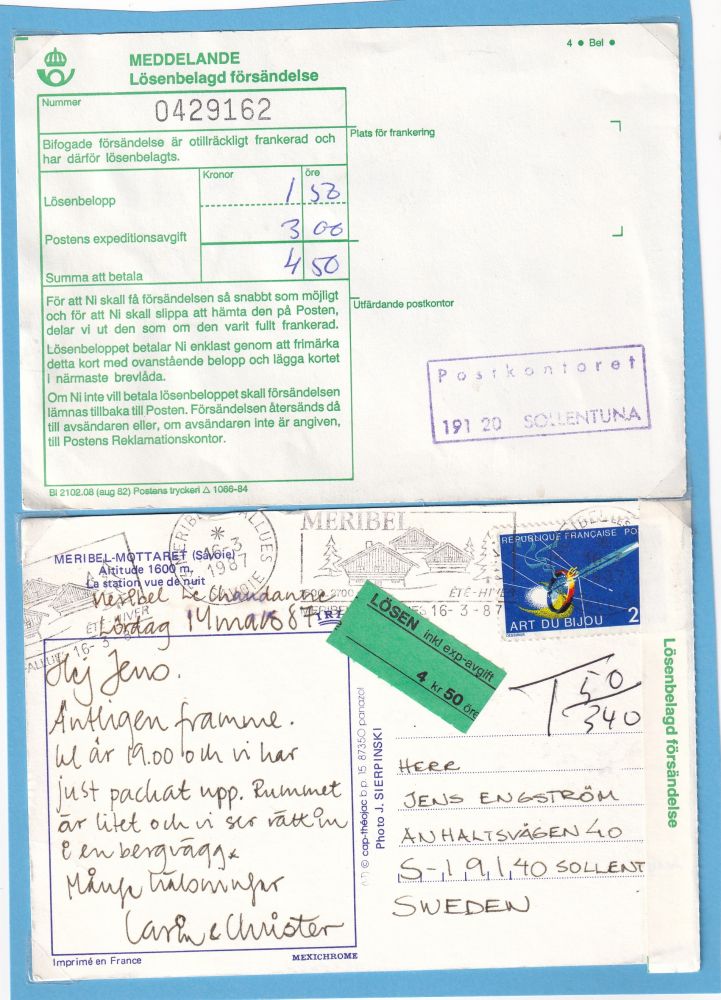 4 ● Bel ●
MEDDELANDE
Lösenbelagd försändelse
Nummer
0429162
Bifogade försändelse är otillräckligt frankerad och
har därför lösenbelagts.
Kronor öre
Lösenbelopp 1 50
Postens expeditionsavgift 3 00
Summa att betala 4 50
För att Ni skall få försändelsen så snabbt som möjligt
och för att Ni skall slippa att hämta den på Posten,
delar vi ut den som om den varit fullt frankerad.
Lösenbeloppet betalar Ni enklast genom att frimärka
detta kort med ovanstående belopp och lägga kortet
i närmaste brevlåda.
Om Ni inte vill betala lösenbeloppet skall försändelsen
lämnas tillbaka till Posten. Försändelsen återsänds då
till avsändaren eller, om avsändaren inte är angiven,
till Postens Reklamationskontor.
Bl 2102.08 (aug 82) Postens tryckeri △ 1066-84
Plats för frankering
Utfärdande postkontor
Postkontoret
191 20 SOLLENTUNA
MERIBEL-MOTTARET (Savoie)
Altitude 1600 m.
La station vue de nuit
MERIBEL ALLUES
16-3
1987
SAVOIE
MERIBEL
ÉTÉ-HIVER
16-3-87
ÉTÉ-HIVER
16-3-8
REPUBLIQUE FRANÇAISE POS
ART DU BIJOU
2
Meribel Le Chaudanne
Lördag 14 mars 87
Hej Jens.
Äntligen framme.
kl är 19.00 och vi har
just packat upp. Rummet
är litet och vi ser rätt in
i en bergvägg.
Många hälsningar
Carin & Christer
LÖSEN inkl exp-avgift
4 kr 50 öre
T 50
340
HERR
JENS ENGSTRÖM
ANHALTSVÄGEN 40
S-19140 SOLLENT
SWEDEN
© cap-théojac b p. 15. 87350 panazol
Photo J. SIERPINSKI
Lösenbelagd försändelse
Imprimé en France
MEXICHROME